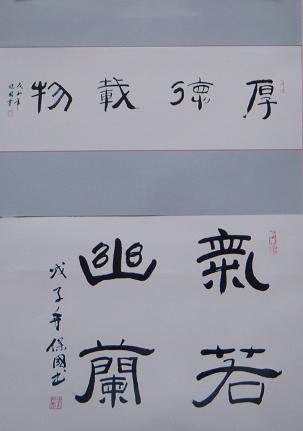 厚德載物
戊子年
保國書
氣若
幽蘭
戊子年保國书